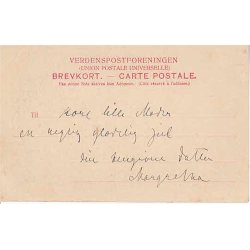 VERDENSPOSTFORENINGEN
(UNION POSTALE UNIVERSELLE)
BREVKORT. — CARTE POSTALE.
Paa denne Side skrives kun Adressen. (Côté réservé à l'adresse.)
Til kære lille Moder
en rigtig glædelig Jul
din hengivne Datter
Margretha